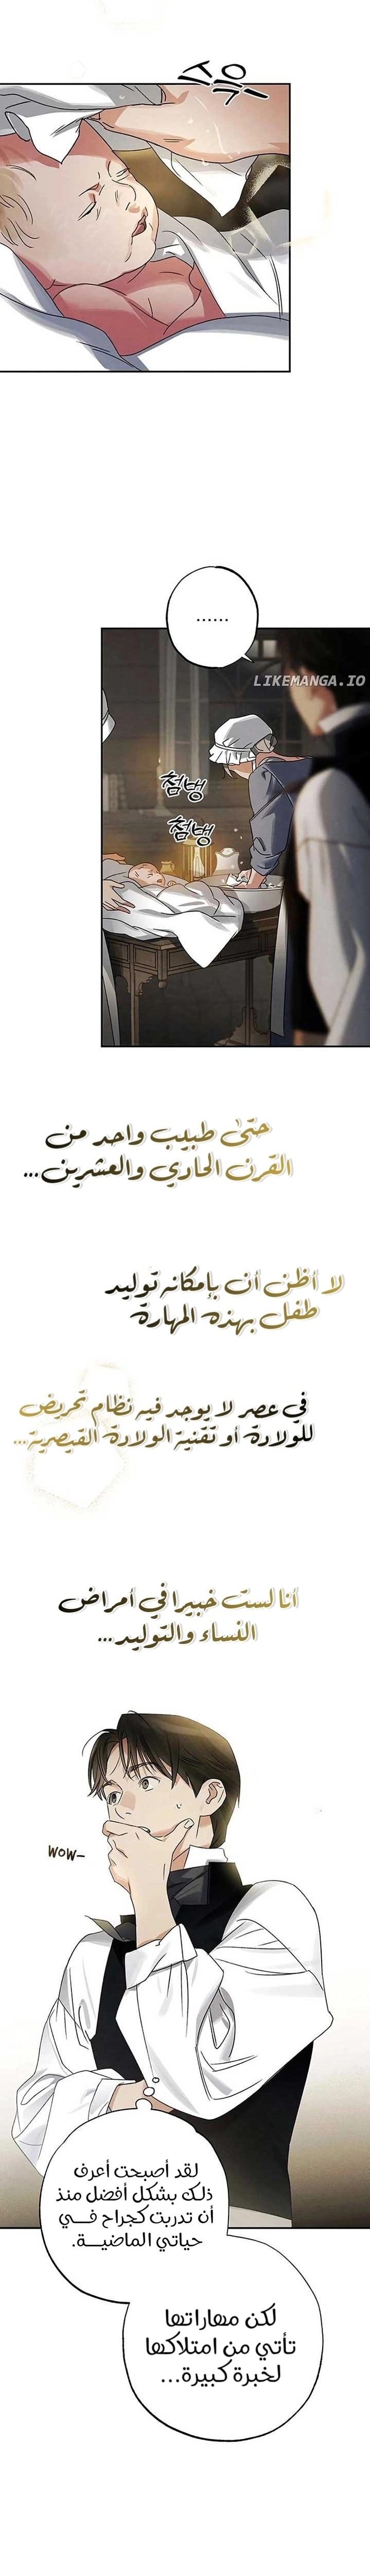 스윽-
......
LIKEMANGA.IO
첨벙
첨벙
حتى طبيب واحد من
القرن الحادي والعشرين...
لا أظن أن بإمكانه توليد
طفل بهذه المهارة
في عصر لا يوجد فيه نظام تحريض
للولادة أو تقنية الولادة القيصرية...
أنا لست خبيرا في أمراض
النساء والتوليد...
WOW-
لقد أصبحت أعرف
ذلك بشكل أفضل منذ
أن تدربت كجراح فــي
حياتي الماضيــة.
لكن مهاراتها
تأتي من امتلاكها
لخبرة كبيرة...